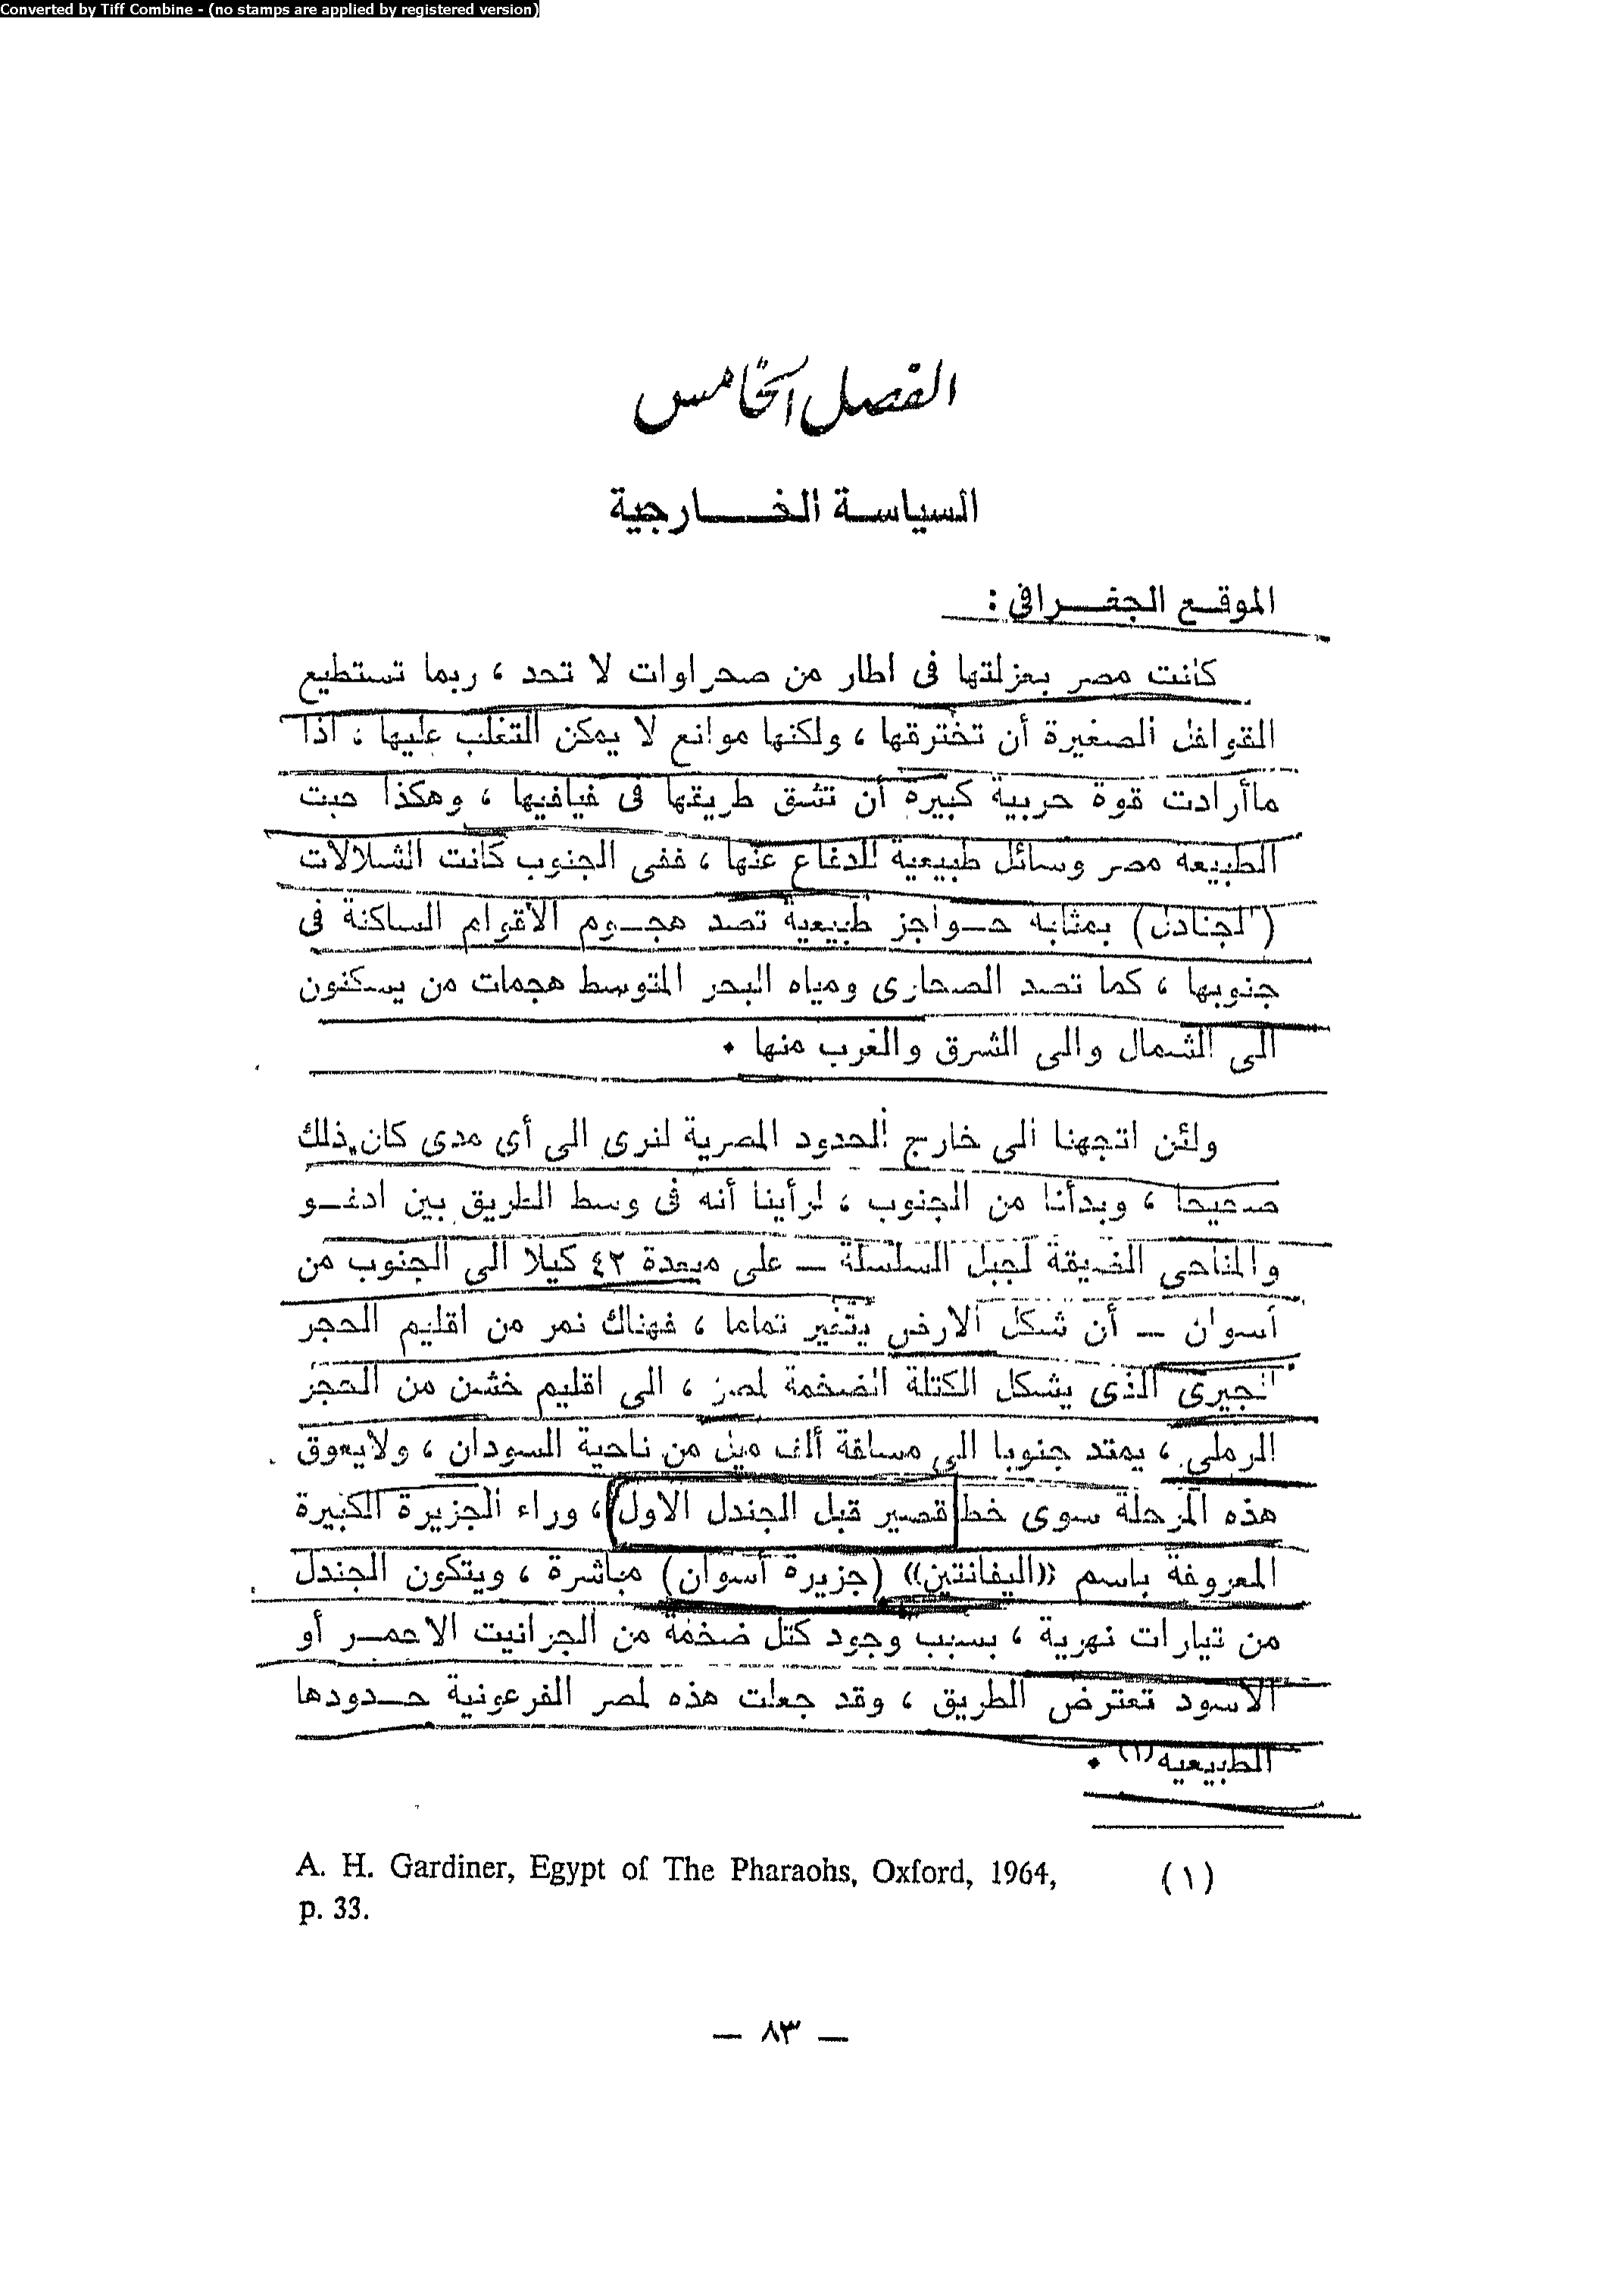 Converted by Tiff Combine - (no stamps are applied by registered version)
الفصل الخامس
السياسة الخـــارجية
الموقـع الجغـــرافى :
كانت مصر بعزلتها فى اطار من صحراوات لا تحد ، ربما تستطيع
القوافل الصغيرة أن تخترقها ، ولكنها موانع لا يمكن التغلب عليها ، اذا
ماأرادت قوة حربية كبيرة أن تشق طريقها فى فيافيها ، وهكذا حبت
الطبيعه مصر وسائل طبيعية للدفاع عنها ، ففى الجنوب كانت الشلالات
(الجنادل) بمثابه حـواجز طبيعية تصد هجـوم الأقوام الساكنة فى
جنوبها ، كما تصد الصحارى ومياه البحر المتوسط هجمات من يسكنون
الى الشمال والى الشرق والغرب منها •
ولئن اتجهنا الى خارج الحدود المصرية لنرى الى أى مدى كان ذلك
صحيحا ، وبدأنا من الجنوب ، لرأينا أنه فى وسط الطريق بين ادفـو
والمناحى الضيقة لجبل السلسلة ـ على مبعدة ٤٢ كيلا الى الجنوب من
أسوان ـ أن شكل الارض يتغير تماما ، فهناك نمر من اقليم الحجر
الجيرى الذى يشكل الكتلة الضخمة لمصر ، الى اقليم خشن من الحجر
الرملى ، يمتد جنوبا الى مسافة ألف ميل من ناحية السودان ، ولايعوق
هذه المرحلة سوى خط قصير قبل الجندل الاول ، وراء الجزيرة الكبيرة
المعروفة باسم «اليفانتين» (جزيرة أسوان) مباشرة ، ويتكون الجندل
من تيارات نهرية ، بسبب وجود كتل ضخمة من الجرانيت الاحمـر أو
الاسود تعترض الطريق ، وقد جعلت هذه لمصر الفرعونية حـدودها
الطبيعيه(١) •
(١) A. H. Gardiner, Egypt of The Pharaohs, Oxford, 1964,
p. 33.
— ٨٣ —